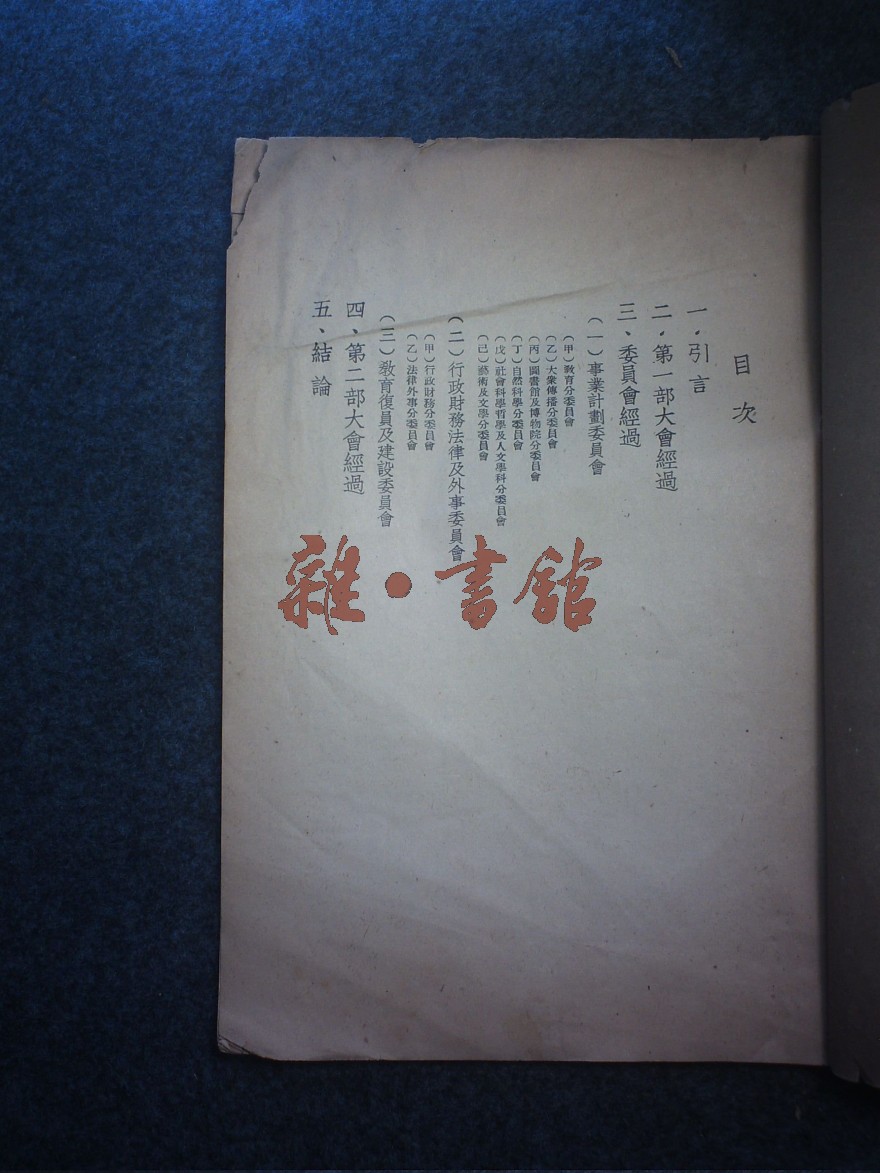 目次
一．引言
二．第一部大會經過
三、委員會經過
（一）事業計劃委員會
（甲）敎育分委員會
（乙）大衆傳播分委員會
（丙）圖書館及博物院分委員會
（丁）自然科學分委員會
（戊）社會科學哲學及人文學科分委員會
（己）藝術及文學分委員會
（二）行政財務法律及外事委員會
（甲）行政財務分委員會
（乙）法律外事分委員會
（三）敎育復員及建設委員會
四、第二部大會經過
五、結論
雜·書館